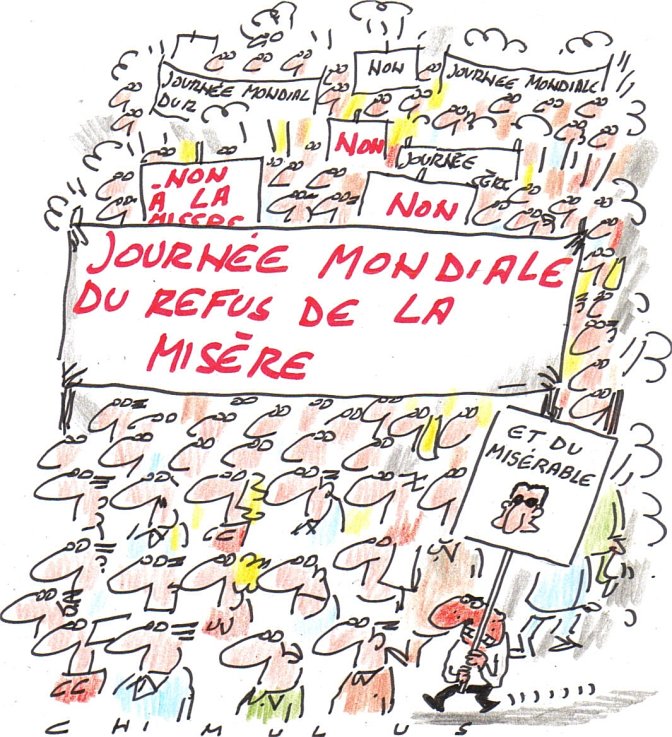 JOURNÉE MONDIAL
DU R
NON
JOURNÉE MONDIALE
NON
JOURNÉE
-NON
À LA
MISERE
NON
JOURNÉE MONDIALE
DU REFUS DE LA
MISÈRE
ET DU
MISÉRABLE
CHIMULUS